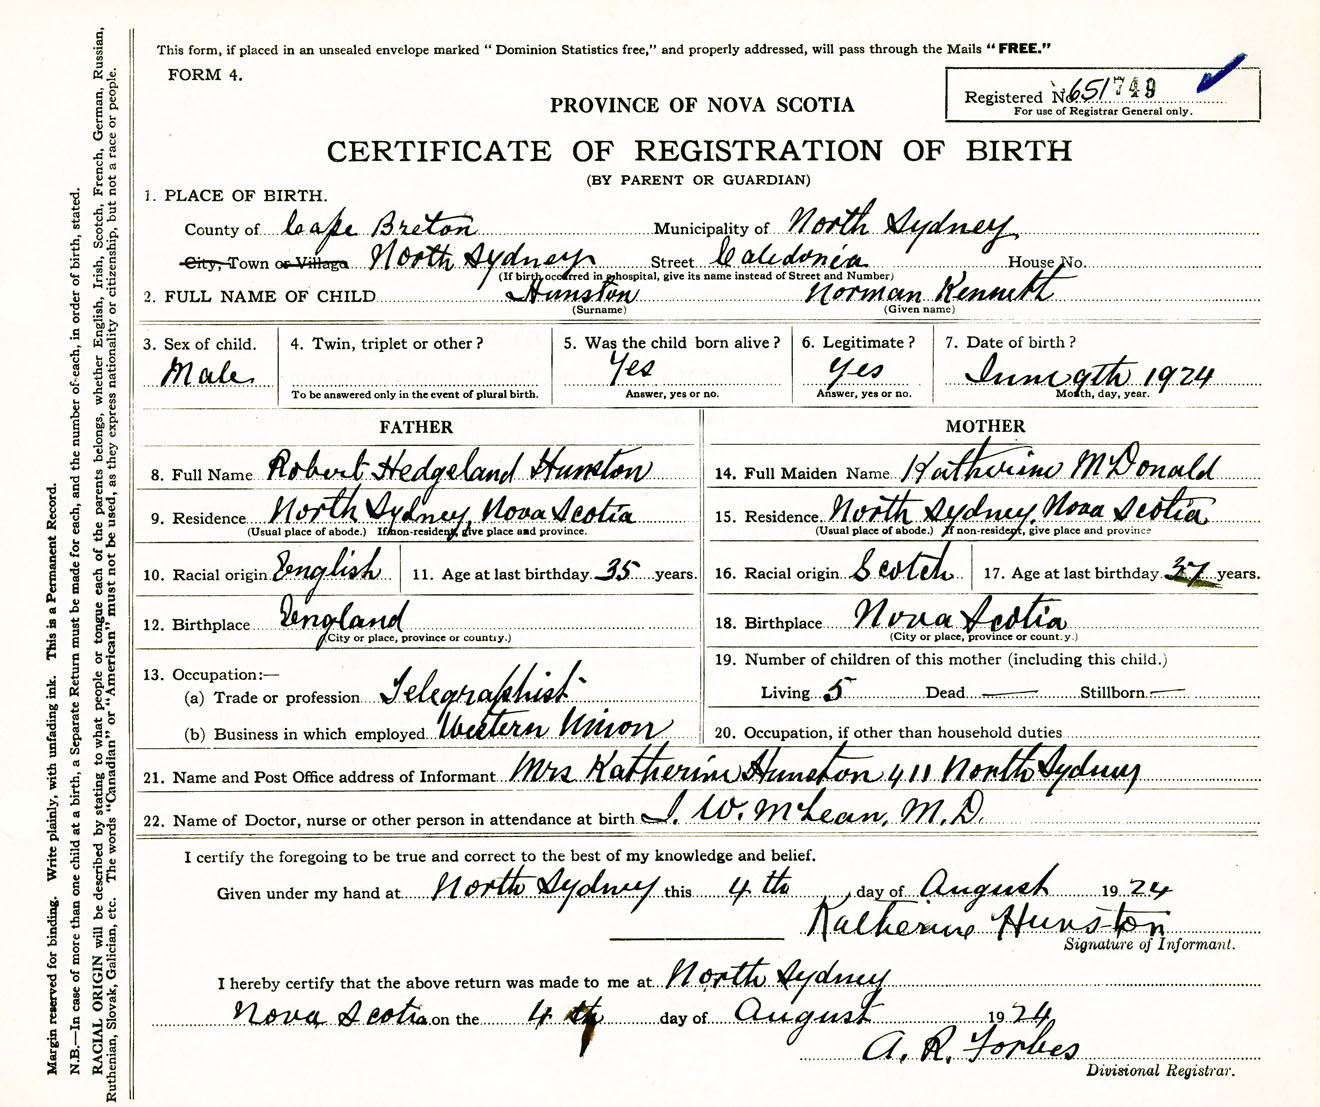 This form, if placed in an unsealed envelope marked “ Dominion Statistics free,” and properly addressed, will pass through the Mails “ FREE.”
FORM 4.
Registered No. 651749
For use of Registrar General only.
PROVINCE OF NOVA SCOTIA
CERTIFICATE OF REGISTRATION OF BIRTH
(BY PARENT OR GUARDIAN)
1. PLACE OF BIRTH.
County of Cape Breton Municipality of North Sydney
City, Town or Village North Sydney Street Caledonia House No.
(If birth occurred in a hospital, give its name instead of Street and Number)
2. FULL NAME OF CHILD Hunston Norman Kenneth
(Surname) (Given name)
3. Sex of child. 4. Twin, triplet or other ? 5. Was the child born alive ? 6. Legitimate ? 7. Date of birth ?
Male Yes Yes June 9th 1924
To be answered only in the event of plural birth. Answer, yes or no. Answer, yes or no. Month, day, year.
FATHER MOTHER
8. Full Name Robert Hedgeland Hunston 14. Full Maiden Name Katherine McDonald
9. Residence North Sydney, Nova Scotia 15. Residence North Sydney, Nova Scotia
(Usual place of abode.) If non-resident, give place and province. (Usual place of abode.) If non-resident, give place and province
10. Racial origin English 11. Age at last birthday 35 years. 16. Racial origin Scotch 17. Age at last birthday 37 years.
12. Birthplace England 18. Birthplace Nova Scotia
(City or place, province or country.) (City or place, province or country.)
13. Occupation:— 19. Number of children of this mother (including this child.)
(a) Trade or profession Telegraphist Living 5 Dead — Stillborn —
(b) Business in which employed Western Union 20. Occupation, if other than household duties
21. Name and Post Office address of Informant Mrs Katherine Hunston, 411 North Sydney
22. Name of Doctor, nurse or other person in attendance at birth J. W. McLean, M.D.
I certify the foregoing to be true and correct to the best of my knowledge and belief.
Given under my hand at North Sydney this 4 th day of August 1924
Katherine Hunston
Signature of Informant.
I hereby certify that the above return was made to me at North Sydney
Nova Scotia on the 4 th day of August 1924
A. R. Forbes
Divisional Registrar.
Margin reserved for binding. Write plainly, with unfading ink. This is a Permanent Record.
N.B.—In case of more than one child at a birth, a Separate Return must be made for each, and the number of each, in order of birth, stated.
RACIAL ORIGIN will be described by stating to what people or tongue each of the parents belongs, whether English, Irish, Scotch, French, German, Russian,
Ruthenian, Slovak, Galician, etc. The words “Canadian” or “American” must not be used, as they express nationality or citizenship, but not a race or people.